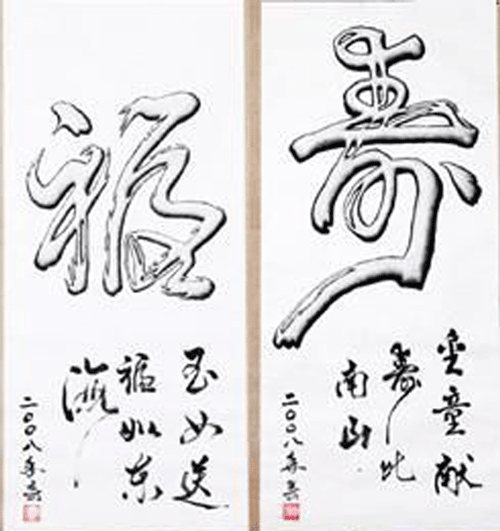 寿
金童献
寿比
南山
二〇〇八年
福
玉女送
福如东
海
二〇〇八年